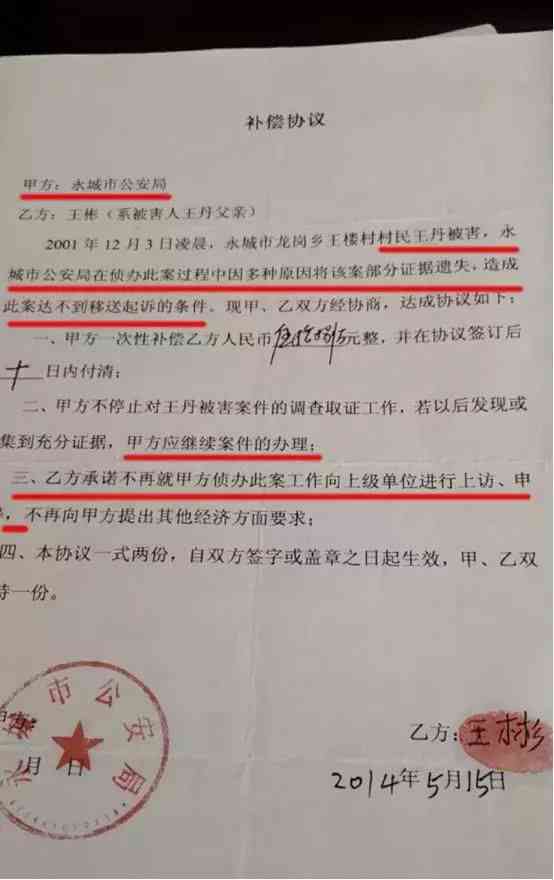 补偿协议
甲方：永城市公安局
乙方：王彬（系被害人王丹父亲）
2001 年 12 月 3 日凌晨，永城市龙岗乡王楼村村民王丹被害，永
城市公安局在侦办此案过程中因多种原因将该案部分证据遗失，造成
此案达不到移送起诉的条件。现甲、乙双方经协商，达成协议如下：
一、甲方一次性补偿乙方人民币元整，并在协议签订后
十日内付清；
二、甲方不停止对王丹被害案件的调查取证工作，若以后发现或
集到充分证据，甲方应继续案件的办理；
三、乙方承诺不再就甲方侦办此案工作向上级单位进行上访、申
，不再向甲方提出其他经济方面要求；
四、本协议一式两份，自双方签字或盖章之日起生效，甲、乙双
持一份。
永城市公安局
月 日
乙方：王彬
2014年5月15日